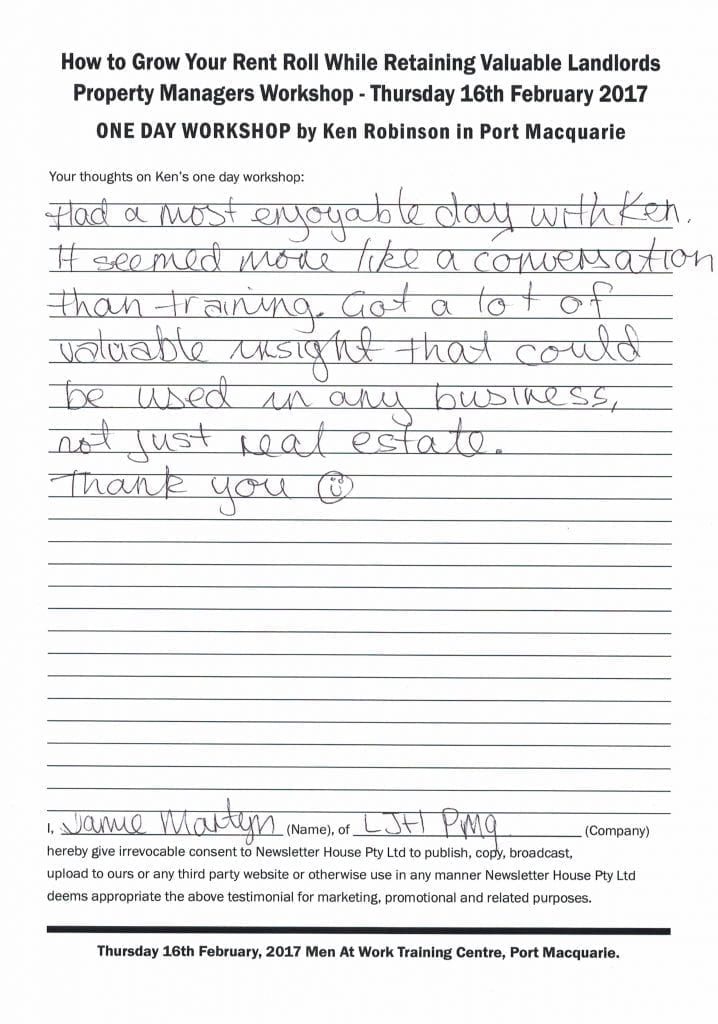 How to Grow Your Rent Roll While Retaining Valuable Landlords
Property Managers Workshop - Thursday 16th February 2017
ONE DAY WORKSHOP by Ken Robinson in Port Macquarie
Your thoughts on Ken's one day workshop:
Had a most enjoyable day with Ken.
It seemed more like a conversation
than training. Got a lot of
valuable insight that could
be used in any business,
not just real estate.
Thank you ☺
I, Jamie Martyn (Name), of LJH PMQ (Company)
hereby give irrevocable consent to Newsletter House Pty Ltd to publish, copy, broadcast,
upload to ours or any third party website or otherwise use in any manner Newsletter House Pty Ltd
deems appropriate the above testimonial for marketing, promotional and related purposes.
Thursday 16th February, 2017 Men At Work Training Centre, Port Macquarie.